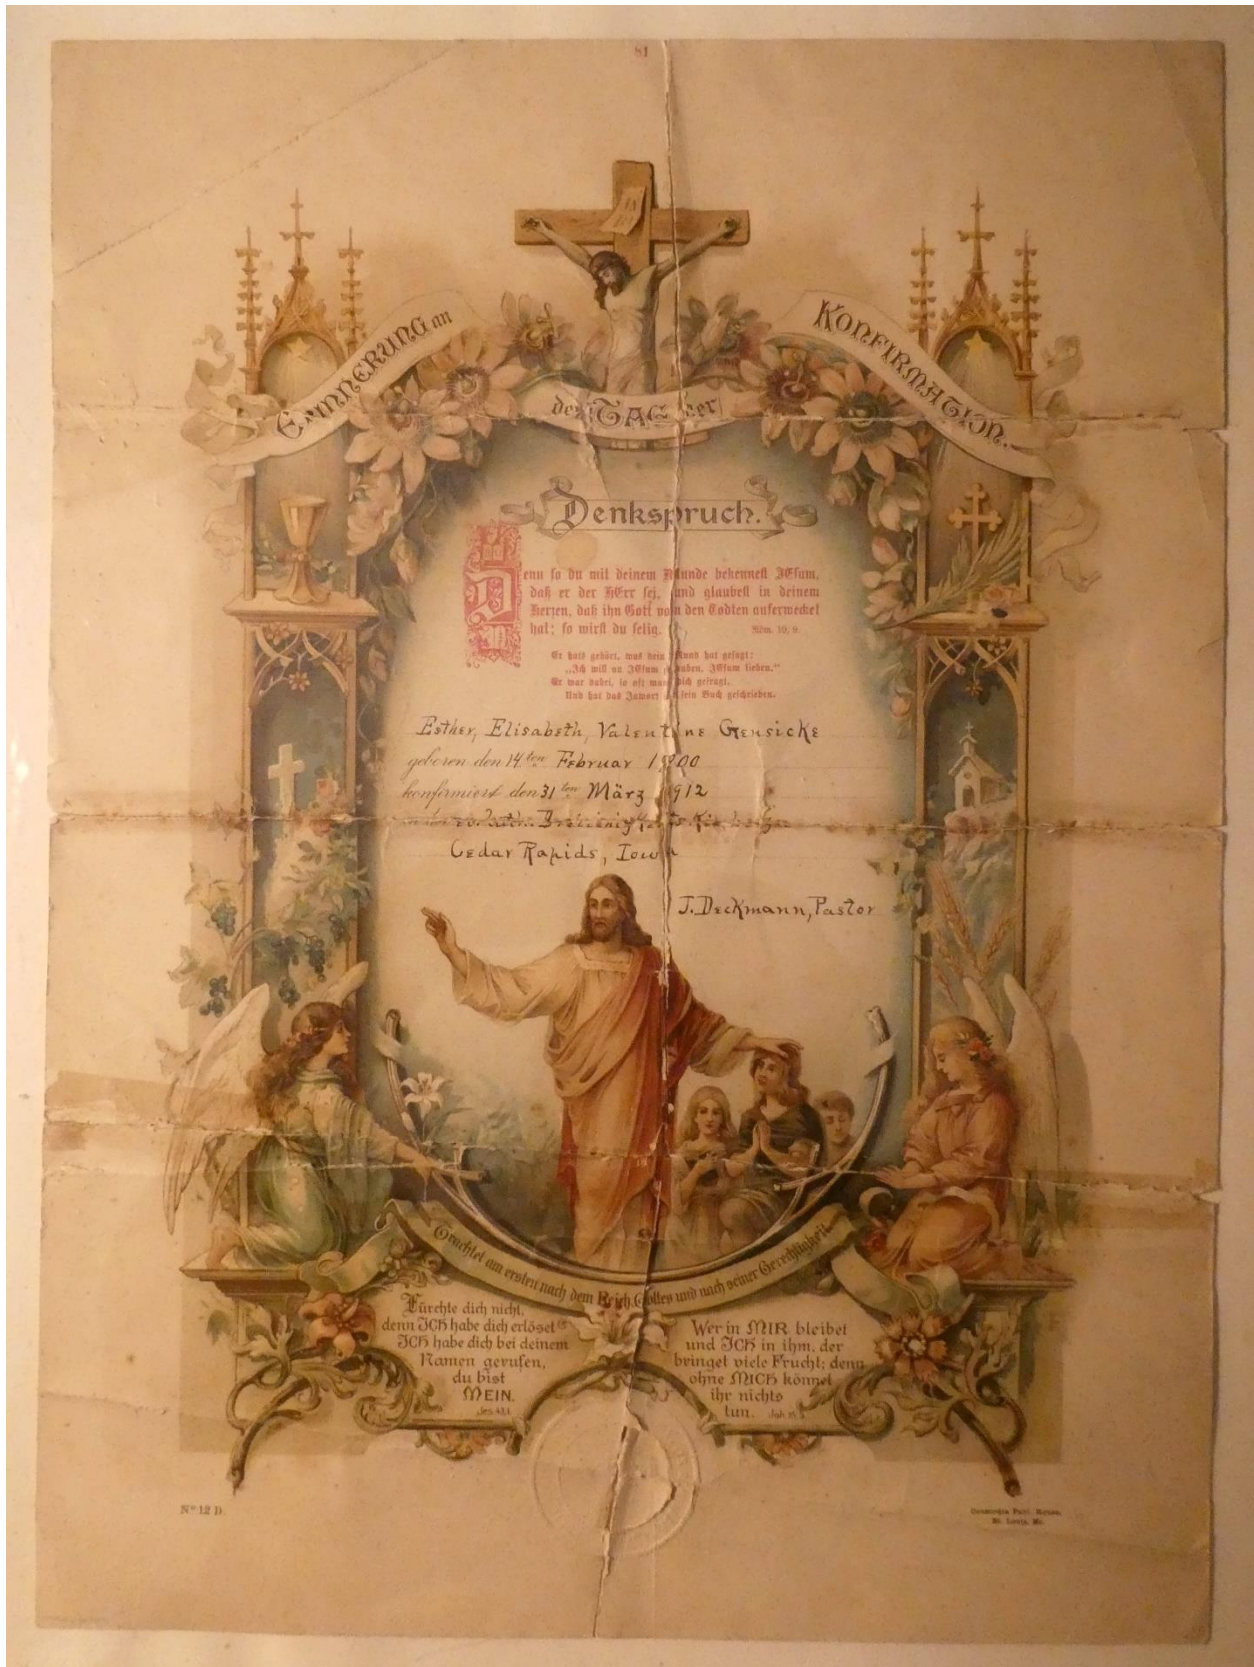 81
ERINNERUNG an
den TAG der
KONFIRMATION.
Denkspruch.
Denn so du mit deinem Munde bekennest JEsum,
daß er der HErr sei, und glaubest in deinem
Herzen, daß ihn Gott von den Todten auferwecket
hat; so wirst du selig.
Röm. 10, 9.
Er hats gehört, was dein Mund hat gesagt:
„Ich will an JEsum glauben, JEsum lieben.“
Er war dabei, so oft man dich gefragt,
Und hat das Jawort in sein Buch geschrieben.
Esther, Elisabeth, Valentine Gensicke
geboren den 14ten Februar 1900
konfirmiert den 31ten März 1912
in der ev. luth.
Cedar Rapids, Iowa
J. Deckmann, Pastor
Trachtet am ersten nach dem Reich Gottes und nach seiner Gerechtigkeit
Fürchte dich nicht,
denn ICH habe dich erlöset
ICH habe dich bei deinem
Namen gerufen,
du bist
MEIN.
Jes. 43,1.
Wer in MIR bleibet
und ICH in ihm, der
bringet viele Frucht; denn
ohne MICH könnet
ihr nichts
tun. Joh. 15,5.
No 12 D.
Concordia Publ. House,
St. Louis, Mo.